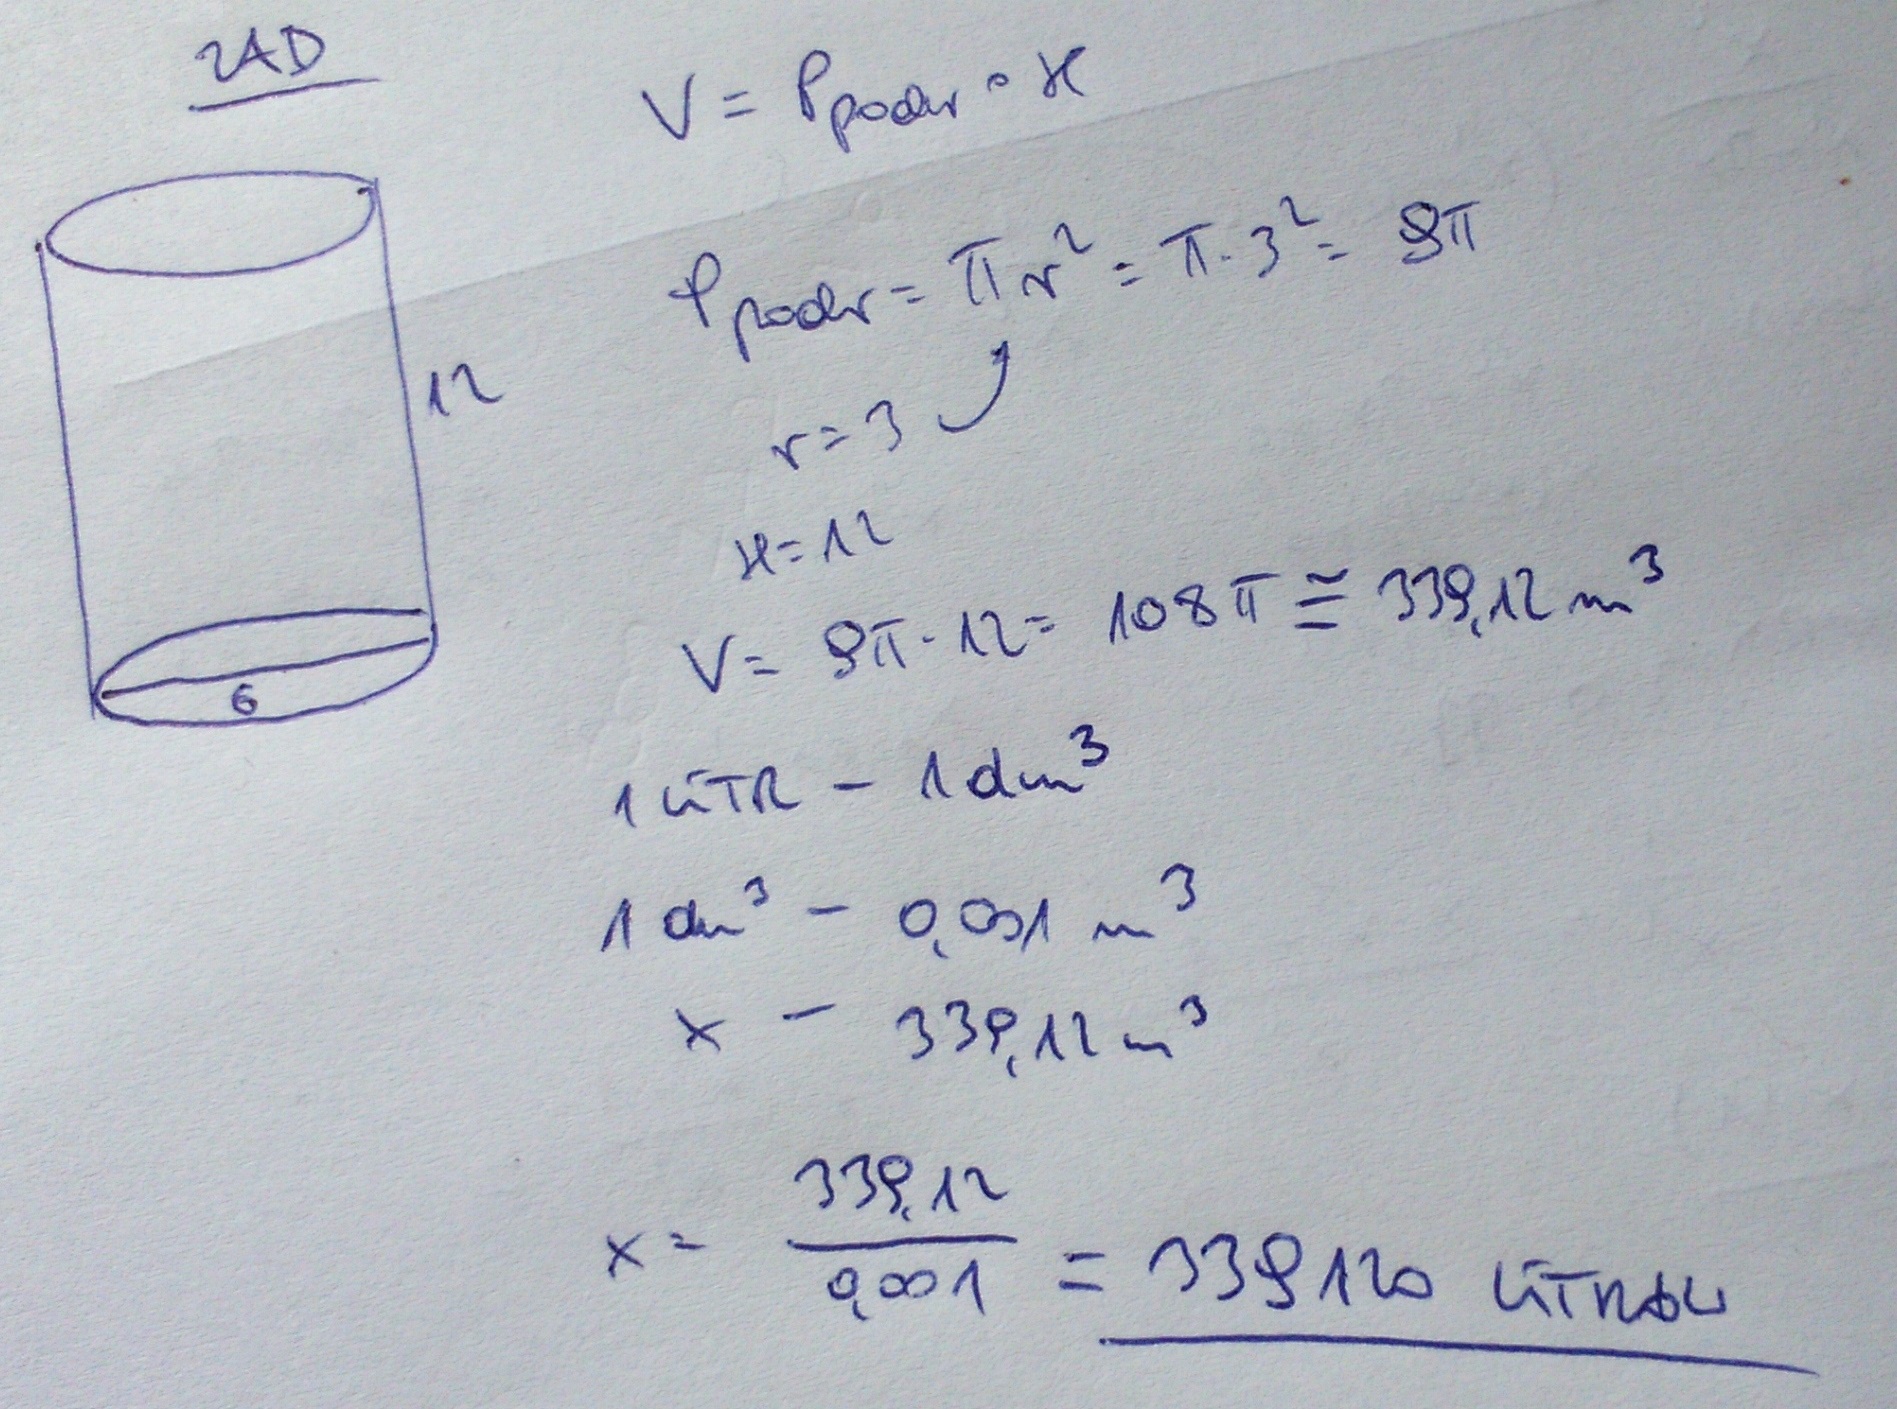 ZAD
V = Ppodst · H
12
6
Ppodst = πr² = π·3² = 9π
r = 3
H = 12
V = 9π·12 = 108π ≅ 339,12 m³
1 LITR – 1 dm³
1 dm³ – 0,001 m³
x – 339,12 m³
x = 339,12 / 0,001 = 339120 LITRÓW